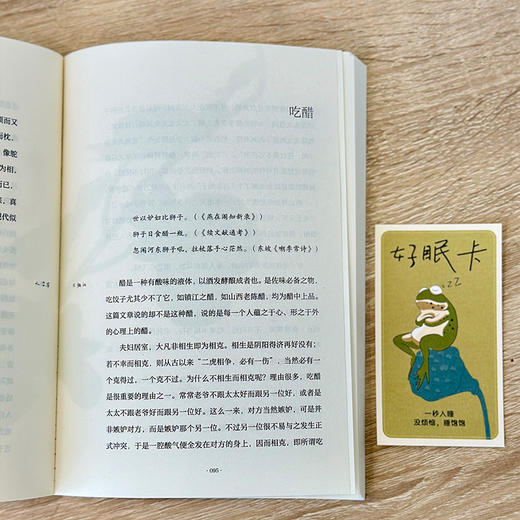 质而又
而枕,
像鸵
为相,
而已,
,真
现代似
吃醋
世以妒妇比狮子。(《燕在阁知新录》)
狮子日食醋一瓶。(《续文献通考》)
忽闻河东狮子吼,拄杖落手心茫然。(东坡《嘲季常诗》)
醋是一种有酸味的液体,以酒发酵酿成者也。是佐味必备之物,
吃饺子尤其少不了它,如镇江之醋,如山西老陈醋,均为醋中上品。
这篇文章说的却不是这种醋,说的是每一个人蕴之于心、形之于外
的心理上的醋。
夫妇居室,大凡非相生即为相克。相生是阴阳得济再好没有;
若不幸而相克,则从古以来“二虎相争,必有一伤”,当然必有一
个克得过,一个克不过。为什么不相生而相克呢?理由很多,吃醋
是很重要的理由之一。常常老爷不跟太太好而跟另一位好,或者是
太太不跟老爷好而跟另一位好。这么一来,对方当然嫉妒,可是并
非嫉妒对方,而是嫉妒那个另一位。不过另一位很不易与之发生正
式冲突,于是一腔酸气便全发在对方的身上,因而相克,即所谓吃
· 095 ·
好眠卡
zzZ
一秒入睡
没烦恼,睡饱饱